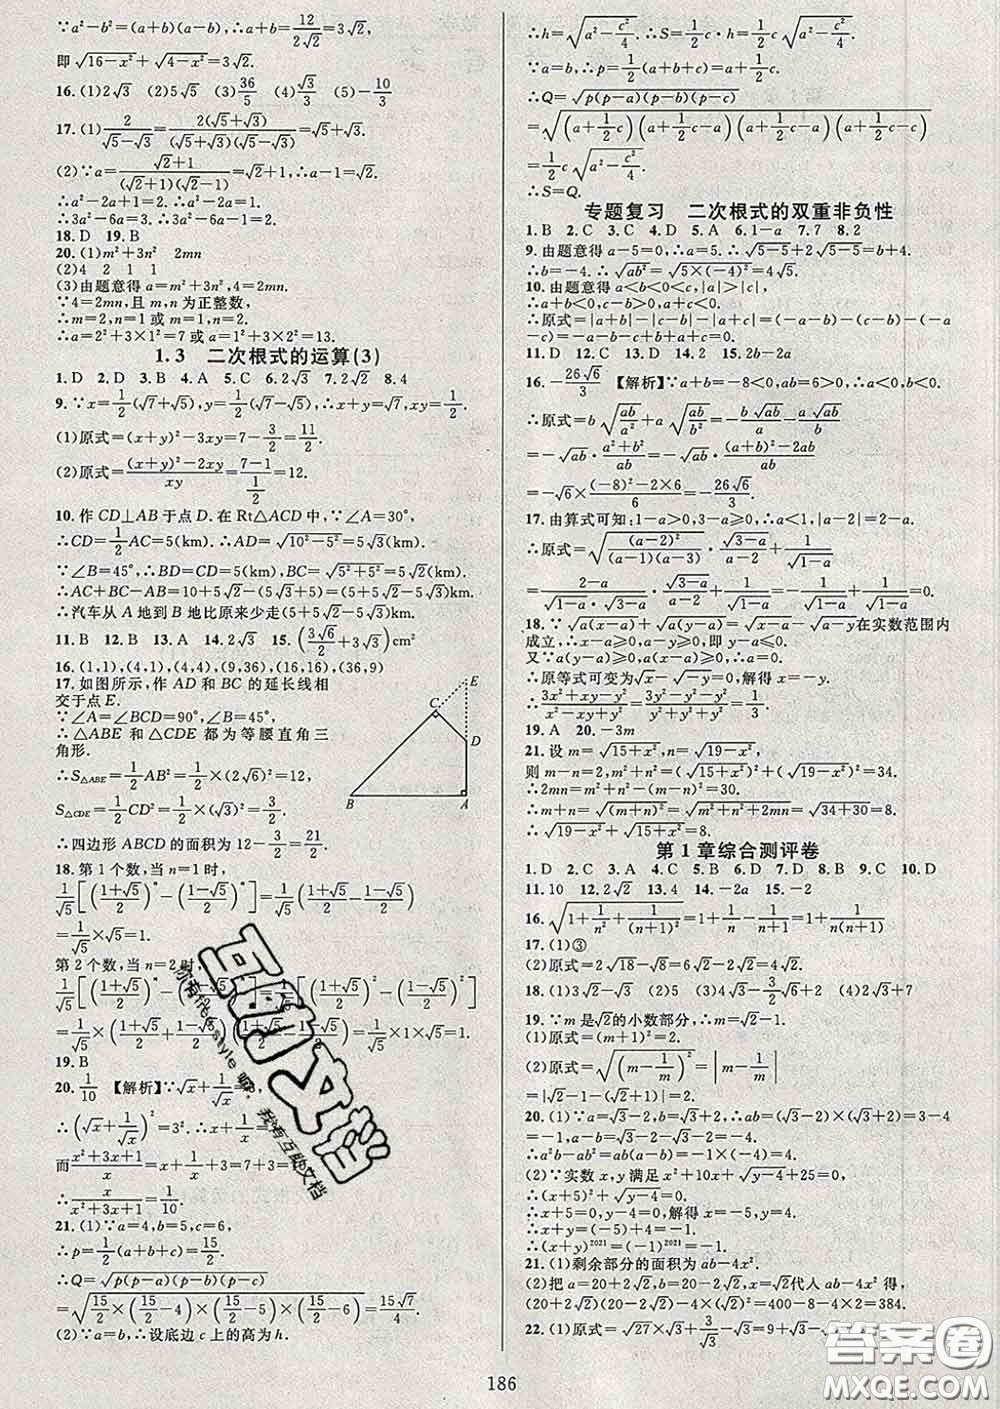 ∵a²-b²=(a+b)(a-b),∴a+b=12/(2√2)=3√2,
即√(16-x²)+√(4-x²)=3√2.
16.(1)2√3 (2)5√5 (3)36/5 (4)√3/3 (5)-10/3
17.(1)2/(√5-√3)=2(√5+√3)/((√5+√3)(√5-√3))=√5+√3.
(2)∵a=(√2+1)/((√2+1)(√2-1))=√2+1,∴a-1=√2.
∴a²-2a+1=2.∴a²-2a=1.
∴3a²-6a=3.∴3a²-6a-1=2.
18.D 19.B
20.(1)m²+3n² 2mn
(2)4 2 1 1
(3)由题意得a=m²+3n²,4=2mn.
∵4=2mn,且m,n为正整数,
∴m=2,n=1或m=1,n=2.
∴a=2²+3×1²=7或a=1²+3×2²=13.
1.3 二次根式的运算(3)
1.D 2.D 3.B 4.A 5.C 6.2√3 7.2√2 8.4
9.∵x=1/2(√7+√5),y=1/2(√7-√5),∴x+y=√7,xy=1/2.
(1)原式=(x+y)²-3xy=7-3/2=11/2.
(2)原式=((x+y)²-2xy)/xy=(7-1)/(1/2)=12.
10.作CD⊥AB于点D.在Rt△ACD中,∵∠A=30°,
∴CD=1/2AC=5(km).∴AD=√(10²-5²)=5√3(km).
∵∠B=45°,∴BD=CD=5(km),BC=√(5²+5²)=5√2(km).
∴AC+BC-AB=10+5√2-(5+5√3)=5+5√2-5√3(km).
∴汽车从A地到B地比原来少走(5+5√2-5√3)km.
11.B 12.B 13.A 14.2√3 15.(3√6/2+3√3)cm²
16.(1,1),(4,1),(4,4),(9,36),(16,16),(36,9)
17.如图所示,作AD和BC的延长线相
交于点E.
∵∠A=∠BCD=90°,∠B=45°,
∴△ABE和△CDE都为等腰直角三
角形.
∴S△ABE=1/2AB²=1/2×(2√6)²=12,
S△CDE=1/2CD²=1/2×(√3)²=3/2.
∴四边形ABCD的面积为12-3/2=21/2.
E
C
D
B
A
18.第1个数,当n=1时,
1/√5[((1+√5)/2)ⁿ-((1-√5)/2)ⁿ]=1/√5((1+√5)/2-(1-√5)/2)
=1/√5×√5=1.
第2个数,当n=2时,
1/√5[((1+√5)/2)ⁿ-((1-√5)/2)ⁿ]=1/√5[((1+√5)/2)²-((1-√5)/2)²]
=1/√5×((1+√5)/2+(1-√5)/2)((1+√5)/2-(1-√5)/2)=1/√5×1×√5=1.
19.B
20.1/10 【解析】∵√x+1/√x=3,
∴(√x+1/√x)²=3².∴x+1/x=7.
而(x²+3x+1)/x=x+1/x+3=7+3=10,
∴x/(x²+3x+1)=1/10.
21.(1)∵a=4,b=5,c=6,
∴p=1/2(a+b+c)=15/2.
∴Q=√(p(p-a)(p-b)(p-c))
=√(15/2(15/2-4)(15/2-5)(15/2-6))=15√7/4.
(2)∵a=b,∴设底边c上的高为h.
∴h=√(a²-c²/4).∴S=1/2c·h=1/2c√(a²-c²/4).
∵a=b,∴p=1/2(a+b+c)=a+1/2c.
∴Q=√(p(p-a)(p-b)(p-c))
=√((a+1/2c)(a+1/2c-a)(a+1/2c-a)(a+1/2c-c))
=1/2c√(a²-c²/4).
∴S=Q.
专题复习 二次根式的双重非负性
1.B 2.C 3.C 4.D 5.A 6.1-a 7.7 8.2
9.由题意得a-5=0,∴a=5.∴√(5-5)+2√(5-5)=b+4.
∴b=-4.∴√(ab²)=√(5×(-4)²)=4√5.
10.由题意得a<b<0<c,|a|>|c|,
∴a+b<0,c-b>0,a+c<0.
∴原式=|a+b|-|c-b|+|a+c|=(-a-b)-(c-b)+(-c
-a)=-a-b-c+b-a-c=-2a-2c.
11.D 12.D 13.D 14.2 15.2b-a
16.-26√6/3 【解析】∵a+b=-8<0,ab=6>0,∴a<0,b<0.
∴原式=b√(ab/a²)+a√(ab/b²)=-b√ab/a-a√ab/b
=-√ab·(a²+b²)/ab=-√ab·((a+b)²-2ab)/ab
=-√6×((-8)²-2×6)/6=-26√6/3.
17.由算式可知:1-a>0,3-a≥0,∴a<1,|a-2|=2-a.
∴原式=√((a-2)²/((1-a)(a-3)))·√(3-a)/(a-2)+1/√(1-a)
=(2-a)/(√(1-a)·√(3-a))·√(3-a)/(a-2)+1/√(1-a)=0.
18.∵√(a(x-a))+√(a(y-a))=√(x-a)-√(a-y)在实数范围内
成立,∴x-a≥0,a-y≥0,即y-a≤0.
又∵a(y-a)≥0,a(x-a)≥0,∴a=0.
∴原等式可变为√x-√(-y)=0,解得x=-y.
∴(3x²+xy-y²)/(x²-xy+y²)=(3y²-y²-y²)/(y²+y²+y²)=1/3.
19.A 20.-3m
21.设m=√(15+x²),n=√(19-x²),
则m-n=2,m²+n²=(√(15+x²))²+(√(19-x²))²=34.
∴2mn=(m²+n²)-(m-n)²=34-2²=30.
∴m+n=√((m+n)²)=√(m²+n²+2mn)=√(34+30)=8.
∴√(19-x²)+√(15+x²)=8.
第1章综合测评卷
1.D 2.C 3.A 4.C 5.B 6.D 7.B 8.B 9.C 10.D
11.10 12.2√2 13.4 14.-2a 15.-2
16.√(1+1/n²+1/(n+1)²)=1+1/n-1/(n+1)=1+1/(n(n+1))
17.(1)③
(2)原式=2√18-√8=6√2-2√2=4√2.
18.(1)3√2-√3 (2)5 (3)4√3-3/2√2+√6 (4)2√3+7
19.∵m是√2的小数部分,∴m=√2-1.
(1)原式=(m+1)²=2.
(2)原式=√((m-1/m)²)=|m-1/m|
=|√2-1-(√2+1)|=2.
20.(1)∵a=√3-2,b=√3+2,∴ab=(√3-2)×(√3+2)=3-4
=-1.∴a²b-ab²=ab(a-b)=(-1)×(-4)=4.
(2)∵实数x,y满足x²+10x+√(y-4)+25=0,
∴(x+5)²+√(y-4)=0.
∴x+5=0,y-4=0,解得x=-5,y=4.
∴x+y=(-5)+4=-1.
∴(x+y)²⁰²¹=(-1)²⁰²¹=-1.
21.(1)剩余部分的面积为ab-4x².
(2)把a=20+2√2,b=20-2√2,x=√2代入ab-4x²得,
(20+2√2)(20-2√2)-4×(√2)²=400-8-4×2=384.
22.(1)原式=√(27×3)+3/√3-√3=9+√3-√3=9.
186
互助文档
你有freestyle嘛,
我有互助文档
答案圈
MXQE.COM